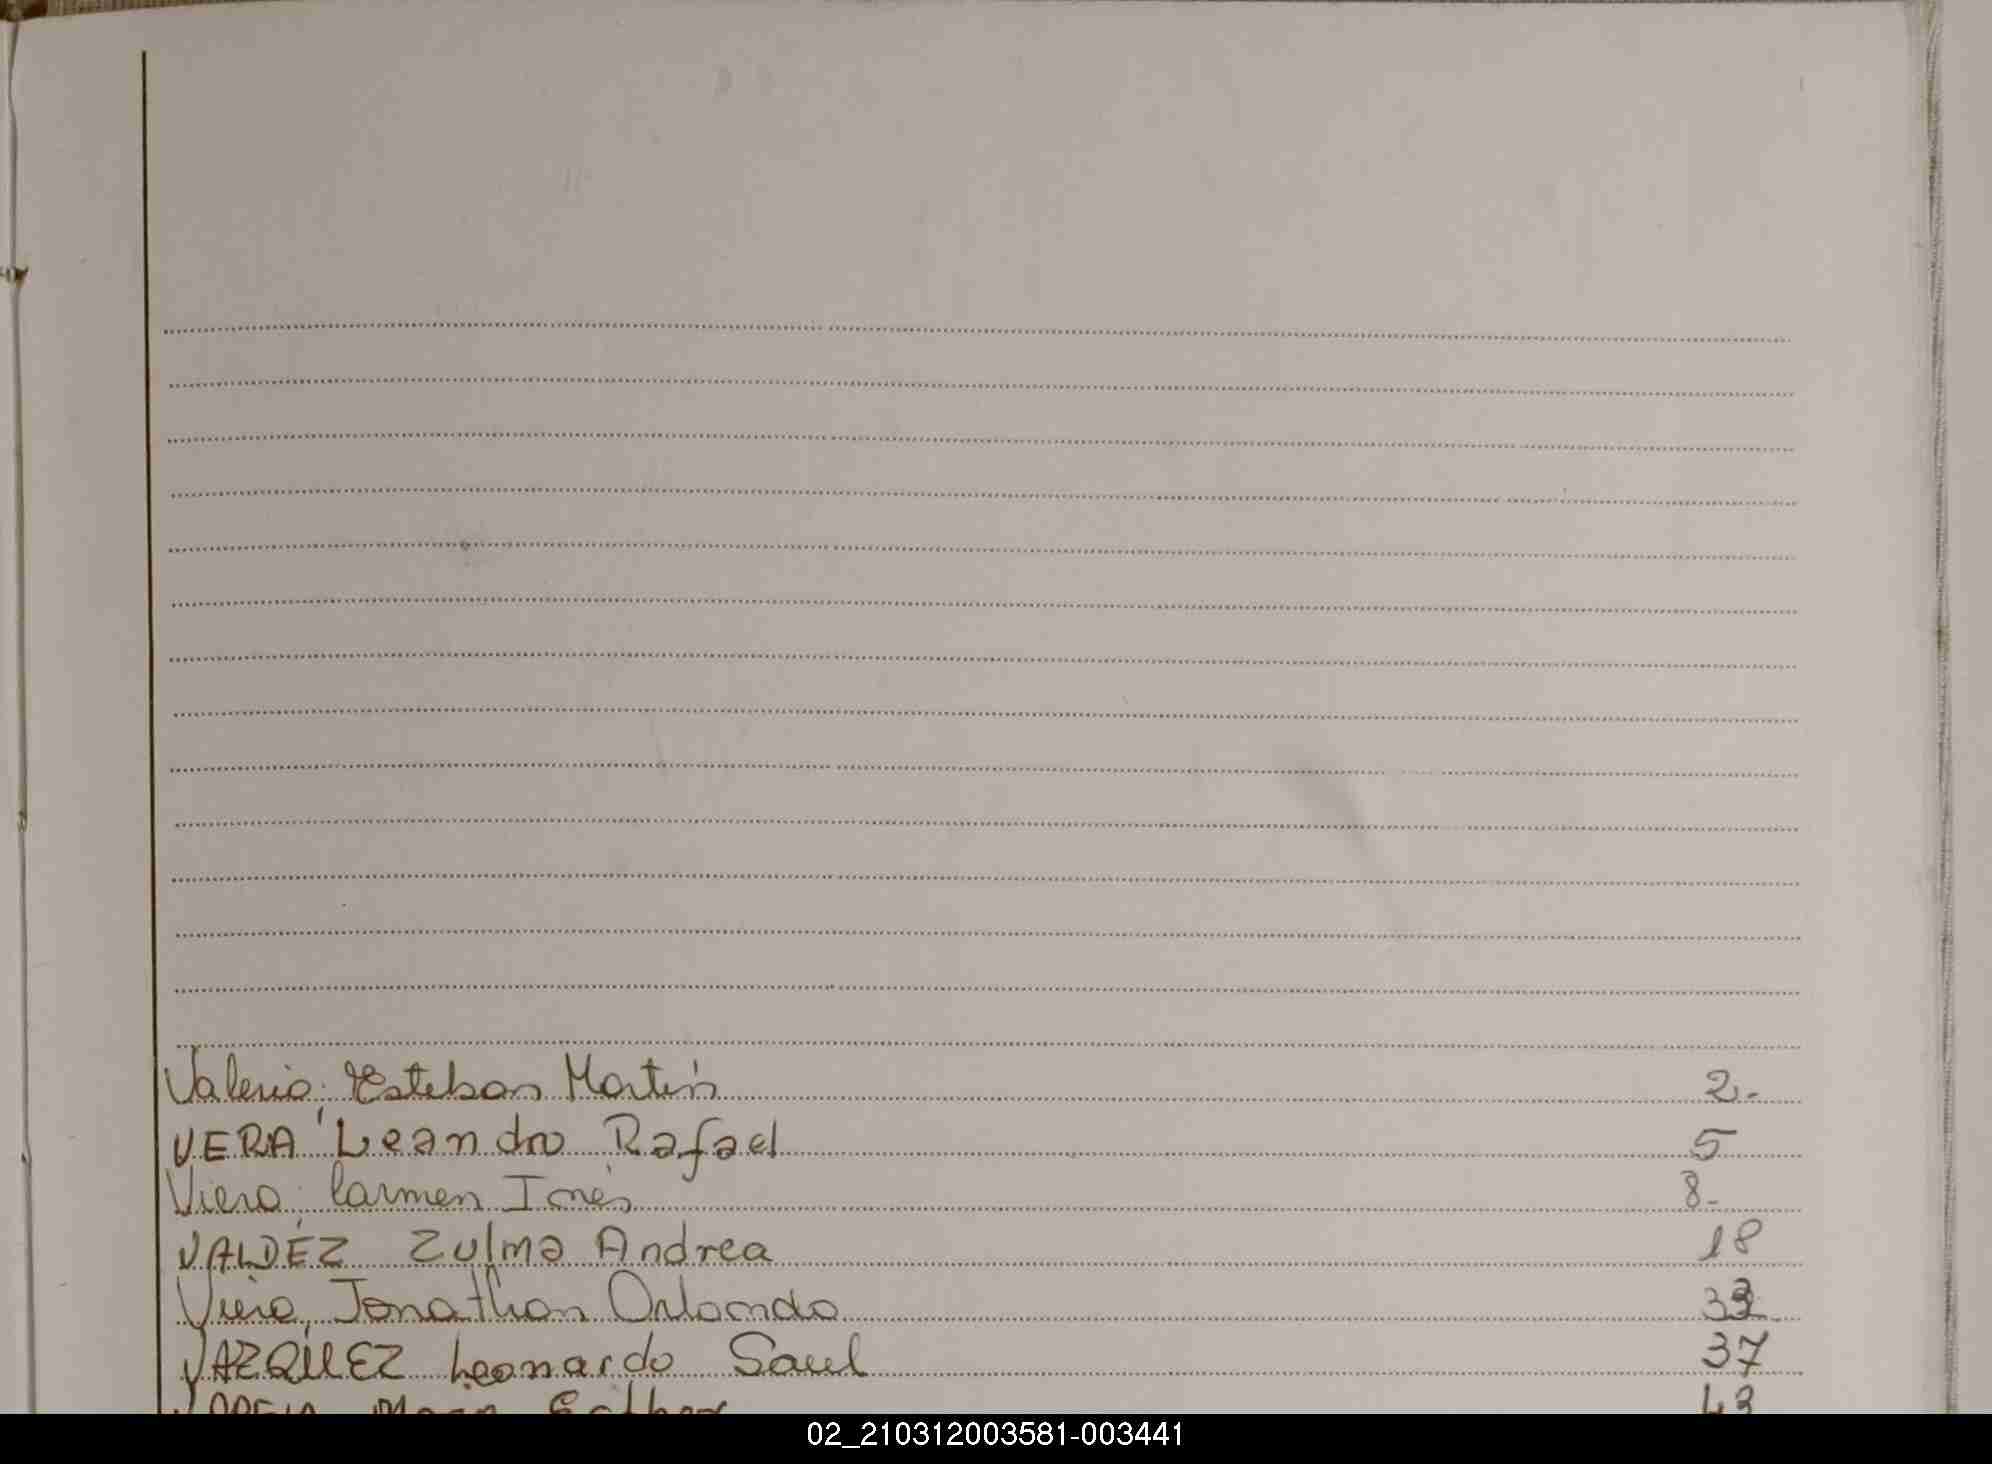 Valerio, Esteban Martín 2.-
VERA, Leandro Rafael 5
Viera, Carmen Inés 8.-
VALDÉZ Zulma Andrea 18
Viera, Jonathan Orlando 33
VAZQUEZ Leonardo Saul 37
43
02_210312003581-003441